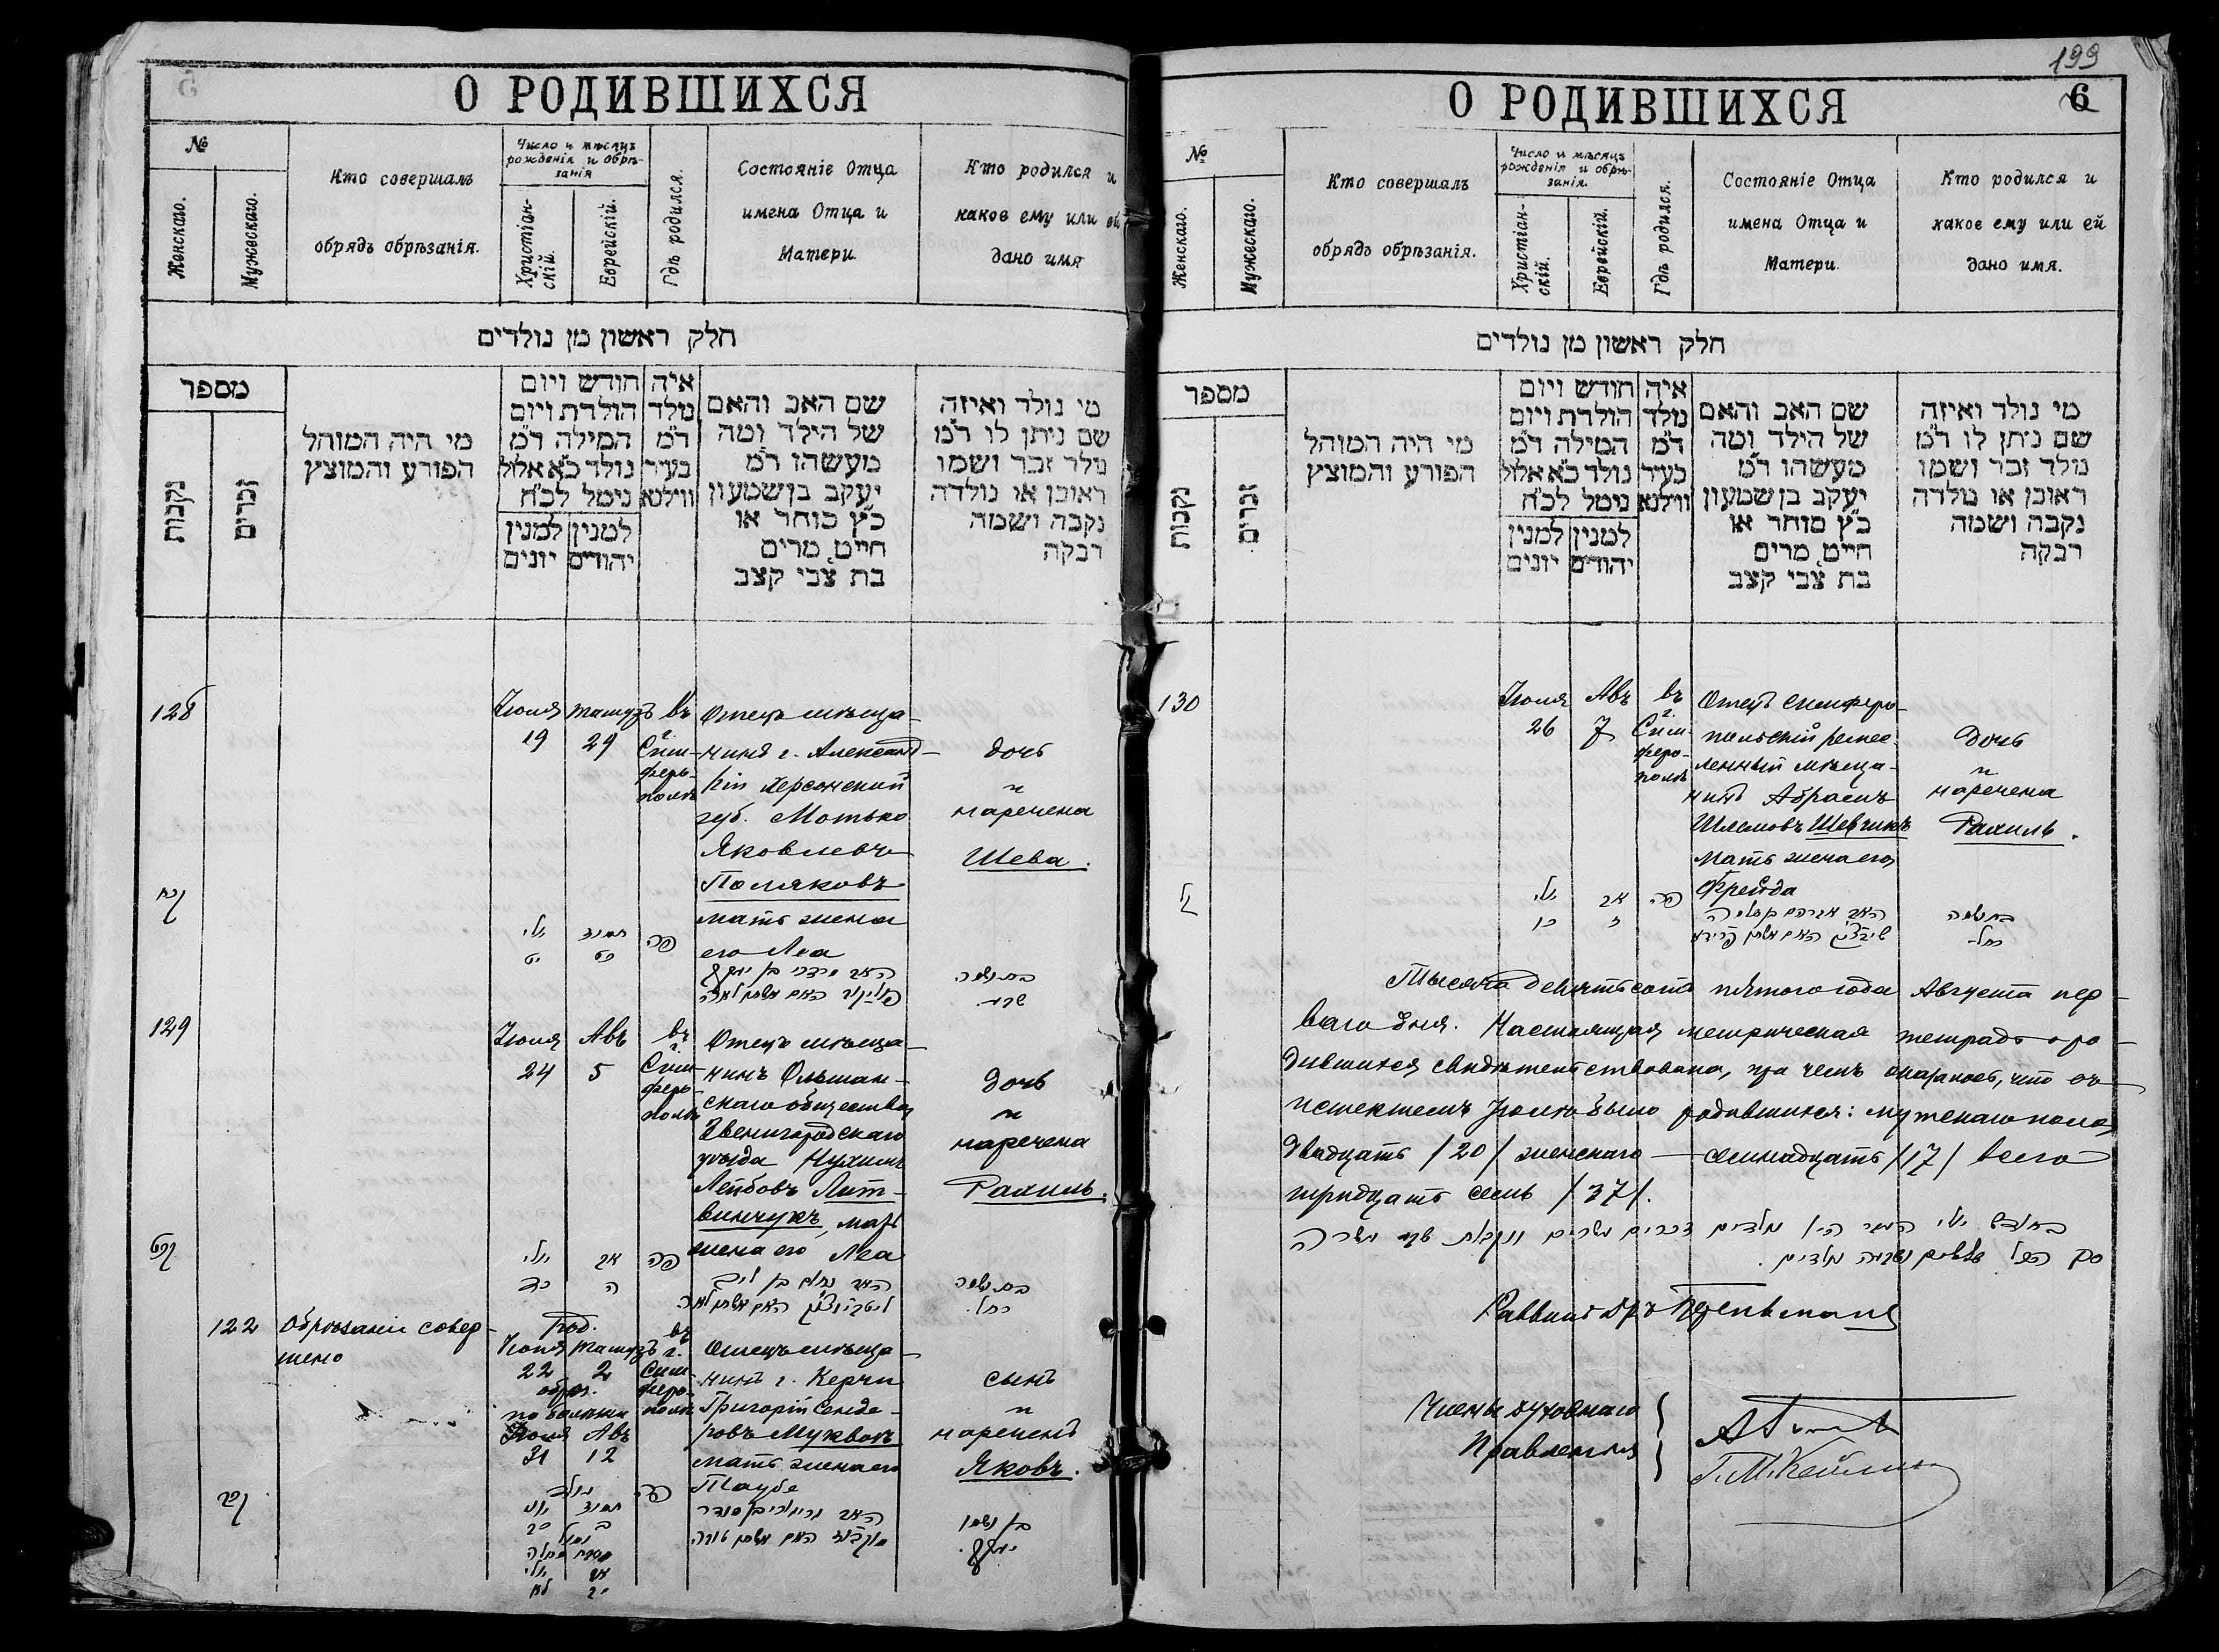 О РОДИВШИХСЯ
№
Женскаго.
Мужескаго.
Кто совершалъ
обрядъ обрѣзанія.
Число и мѣсяцъ
рожденія и обрѣ-
занія
Христіан-
скій.
Еврейскій.
Гдѣ родился.
Состояніе Отца
имена Отца и
Матери
Кто родился и
какое ему или ей
дано имя
חלק ראשון מן נולדים
מספר
נקבות
זכרים
מי היה המוהל
הפורע והמוצץ
חודש ויום
הולדת ויום
המילה ד״מ
נולד כ״א אלול
נימל לכ״ח
למנין למנין
יהודים יונים
איה
נולד
ד״מ
בעיר
ווילנא
שם האב והאם
של הילד ומה
מעשהו ד״מ
יעקב בן שמעון
כ״ץ סוחר או
חייט, מרים
בת צבי קצב
מי נולד ואיזה
שם ניתן לו ד״מ
נולד זכר ושמו
ראובן או נולדה
נקבה ושמה
רבקה
128
Іюля
19
Тамузъ
29
въ
г.
Сим-
феро-
полѣ
Отецъ мѣща-
нинъ г. Александ-
рій Херсонской
губ. Мотько
Яковлевъ
Поляковъ
мать жена
его Леа
дочь
и
наречена
Шева.
קכח
יולי
יט
תמוז
כט
פה
האב מרדכי בן יוסף
פאליקוב האם אשתו לאה
בת ושמה
שבע.
129
Іюля
24
Авъ
5
въ
г.
Сим-
феро-
полѣ
Отецъ мѣща-
нинъ Ольшан-
скаго общества
Звенигородскаго
уѣзда Нухимъ
Лейбовъ Лит-
винчукъ, мать
жена его Леа
дочь
и
наречена
Рахиль.
קכט
יולי
כד
אב
ה
פה
האב נחום בן ליב
ליטווינצוק האם אשתו לאה.
בת ושמה
רחל.
122
Обрѣзаніе совер-
шено
Род.
Іюня Тамузъ
22 2
обрѣз.
по болѣзни
Іюля Авъ
31 12
въ
г.
Сим-
феро-
полѣ
Отецъ мѣща-
нинъ г. Керчи
Григорій Сенде-
ровъ Мукволъ
мать жена его
Таубе
сынъ
и
нареченъ
Яковъ.
קכב
נולד
תמוז יוני
ב כב
נימול
מסבת מחלה
אב יולי
יב לא
פה
בן ושמו
יעקב.
199
6
О РОДИВШИХСЯ
№
Женскаго.
Мужескаго.
Кто совершалъ
обрядъ обрѣзанія.
Число и мѣсяцъ
рожденія и обрѣ-
занія.
Христіан-
скій.
Еврейскій.
Гдѣ родился.
Состояніе Отца
имена Отца и
Матери
Кто родился и
какое ему или ей
дано имя.
חלק ראשון מן נולדים
מספר
נקבות
זכרים
מי היה המוהל
הפורע והמוצץ
חודש ויום
הולדת ויום
המילה ד״מ
נולד כ״א אלול
נימל לכ״ח
למנין למנין
יהודים יונים
איה
נולד
ד״מ
בעיר
ווילנא
שם האב והאם
של הילד ומה
מעשהו ד״מ
יעקב בן שמעון
כ״ץ סוחר או
חייט, מרים
בת צבי קצב
מי נולד ואיזה
שם ניתן לו ד״מ
נולד זכר ושמו
ראובן או נולדה
נקבה ושמה
רבקה
130
Іюля
26
Авъ
7
въ
г.
Сим-
феро-
полѣ
Отецъ симферо-
польскій ремес-
ленный мѣща-
нинъ Абрамъ
Шлемовъ Шевчикъ
мать жена его
Фрейда
дочь
и
наречена
Рахиль.
קל
יולי
כו
אב
ז
פה
האב אברהם בן שלמה
שיבצ׳יק האם אשתו פרידא
בת ושמה
רחל.
Тысяча девятьсотъ пятого года Августа пер-
ваго дня. Настоящая метрическая тетрадь о ро-
дившихся свидѣтельствована, при чемъ оказалось, что въ
истекшемъ Іюлѣ было родившихся: мужскаго пола
двадцать /20/ женскаго — семнадцать /17/ всего
тридцать семь /37/.
בחודש יולי העבר היו נולדים זכרים עשרים ונקבות שבע עשרה
סך הכל שלשים ושבעה נולדים.
Раввинъ Д-ръ
Члены духовнаго
Правленія
Г. М. Кейлин